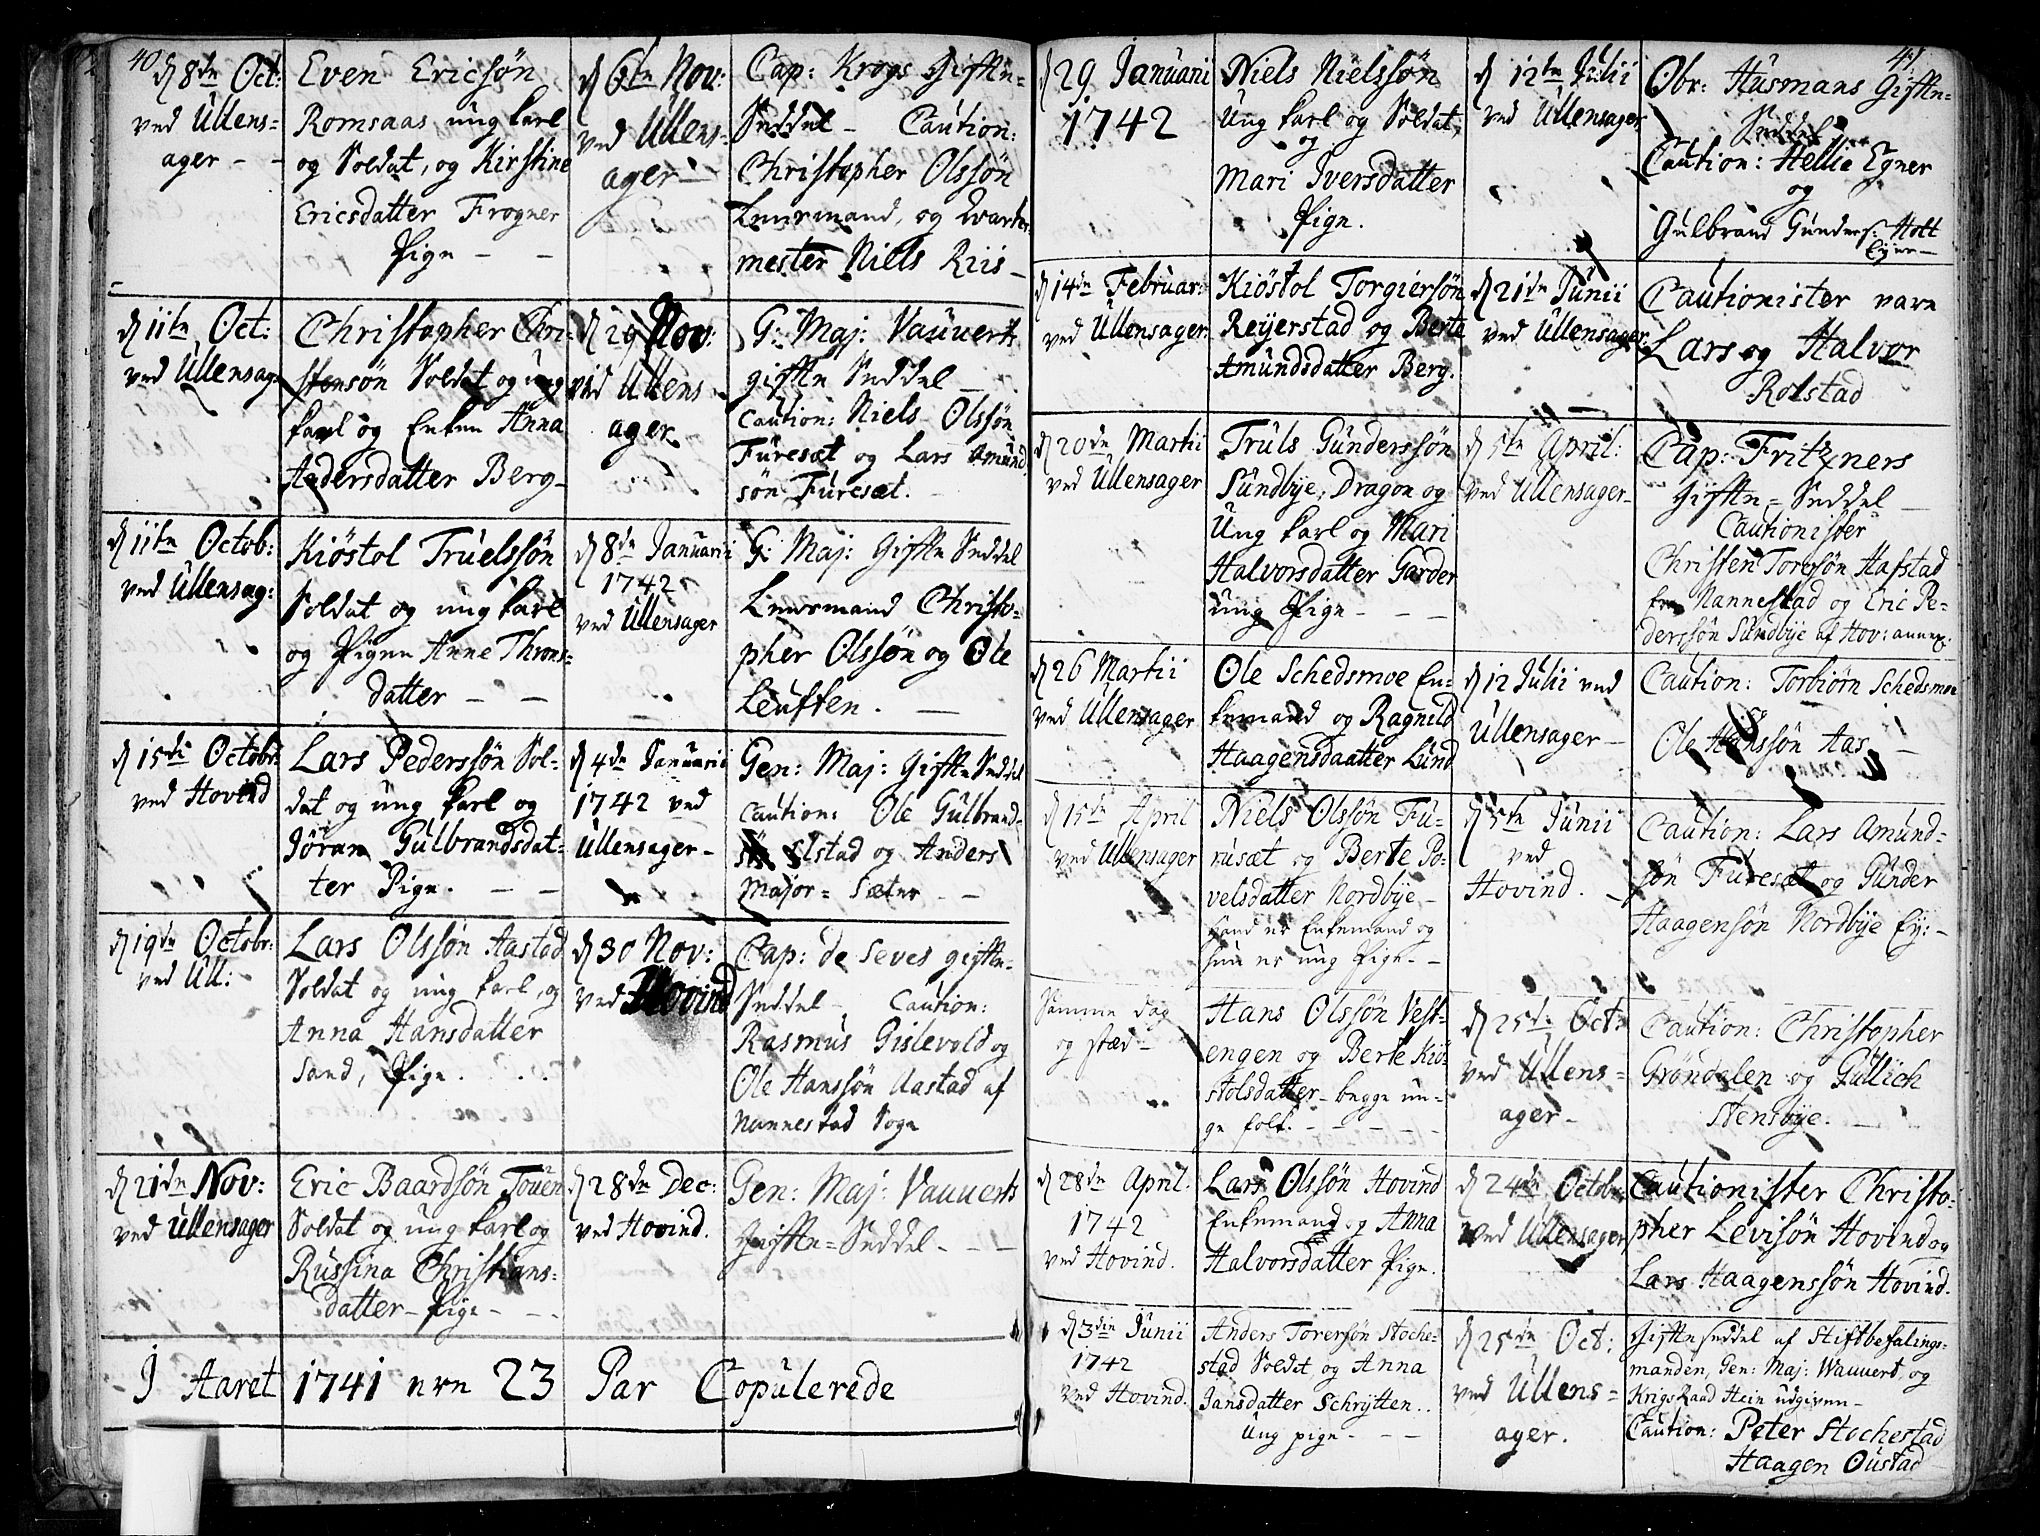 40
d 8de Oct:
ved Ullens-
ager - -
Even Ericsøn
Romsaas ung karl
og Soldat, og Kirstine
Ericsdatter Frogner
Pige - -
d 6te Nov:
ved Ullens-
ager -
Cap: Krogs Gifte-
Seddel - Caution:
Christopher Olssøn
Lensmand, og Qvarter
mester Niels Riis -
d 11te Oct:
ved Ullensag
Christopher Chri-
stensøn Soldat og ung
karl og Enken Anna
Andersdatter Berg -
d 29 Nov:
ved Ullens
ager
G: Maj: Vauvert
gifte Seddel -
Caution: Niels Olssøn
Furesæt og Lars Amund
søn Furesæt.
d 11te Octob:
ved Ullensag:
Kiöstol Truelssøn
Soldat og ung karl
og Pigen Anne Throns-
datter - -
d 8de Januarii
1742
ved Ullensager
G: Maj: Gifte Seddel
Lensmand Christo-
pher Olssøn og Ole
Leuften. -
d 15de Octobr:
ved Hovind
Lars Pederssøn Sol-
dat og ung karl og
Jøran Gulbrandsdat-
ter Pige. - -
d 4de Januarii
1742 ved
Ullensager -
Gen: Maj: Gifte Seddel
Caution: Ole Gulbrand-
søn Elstad og Anders
Major = Sæter - -
d 19de Octobr:
ved Ull:
Lars Olssøn Aastad
Soldat og ung karl, og
Anna Hansdatter
Sand, Pige. . .
d 30 Nov:
ved Hovind
Cap: de Seves gifte-
Seddel - Caution:
Rasmus Gislevold og
Ole Hanssøn Aastad af
Nannestad Sogn
d 21de Nov:
ved Ullensager
Eric Baardsøn Touen
Soldat og ung karl og
Russina Christians-
datter - Pige - - -
d 28de Dec:
ved Hovind.
Gen: Maj: Vauverts
Gifte = Seddel - - -
I Aaret 1741 ere 23 Par Copulerede
41
d 29 Januarii
1742
Niels Nielssøn
Ung karl og Soldat,
og
Mari Iversdatter
Pige.
d 12te Julii
ved Ullensager
Obr: Husmans Gifte-
Seddel
Caution: Hellie Egner
og
Gulbrand Gunders: Holt
Eyer -
d 14de Februar:
ved Ullensager
Kiöstol Torgiersøn
Reijerstad og Berte
Amundsdatter Berg.
d 21de Junii
ved Ullensager
Cautionister vare
Lars og Halvor
Rolstad
d 20de Martii
ved Ullensager
Truls Gunderssøn
Sundbye, Dragon og
Ung karl og Mari
Halvorsdatter Garder
ung Pige - -
d 5te April:
ved Ullensager -
Cap: Fritzners
Gifte = Seddel -
Cautionister
Christen Toresøn Hafstad
fra Nannestad og Eric Pe-
derssøn Sundbye af Hov: annex.
d 26 Martii
ved Ullensager
Ole Schedsmoe En-
kemand og Ragnild
Haagensdaatter Lund
d 12 Julii ved
Ullensager -
Caution: Torbiørn Schedsmoe
Og
Ole Hanssøn Aas -
d 15de April
ved Ullensager
Niels Olssøn Fu-
rusæt og Berte Po-
velsdatter Nordbye -
Hand er Enkemand og
hun er ung Pige - -
d 5te Junii
ved
Hovind.
Caution: Lars Amund-
søn Furesæt og Gunder
Haagensøn Nordbye Ey: -
Samme dag
og stæd -
Hans Olssøn Vest-
engen og Berte Kiö-
stolsdatter - begge un-
ge folk. - - - -
d 25de Oct:
ved Ullens-
ager -
Caution: Christopher
Grøndalen og Gullich
Stensbye. -
d 28de April:
1742
ved Hovind.
Lars Olssøn Hovind
Enkemand og Anna
Halvorsdatter Pige.
d 24de Octobr
ved Ullensager
Cautionister Christo-
pher Levisøn Hovind og
Lars Haagenssøn Hovind.
d 3die Junii
1742
ved Hovind.
Anders Torersøn Stoche-
stad Soldat og Anna
Jansdatter Schrytten..
Ung pige - - -
d 25de Oct:
ved Ullens-
ager.
Gifte seddel af Stiftbefalings-
manden, Gen: Maj: Wauvert, og
KrigsRaad Hein udgiven -
Caution: Peter Stochestad
Haagen Oustad